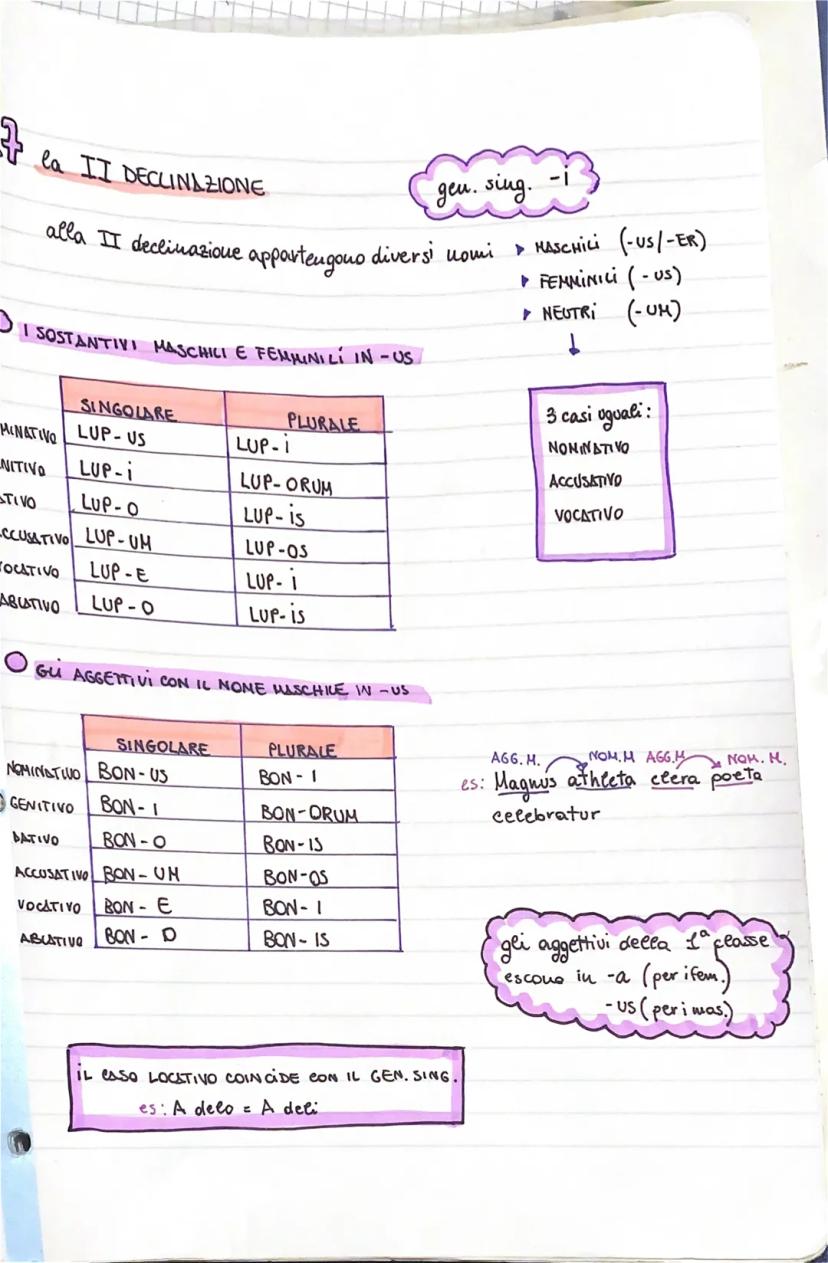 7 la II DECLINAZIONE
gen. sing. -i
alla II declinazione appartengono diversi nomi ▸ MASCHILI (-US/-ER)
▸ FEMMINILI (-US)
▸ NEUTRI (-UM)
↓
I SOSTANTIVI MASCHILI E FEMMINILI IN -US
3 casi uguali:
NOMINATIVO
ACCUSATIVO
VOCATIVO
SINGOLARE PLURALE
MINATIVO LUP-US LUP-i
NITIVO LUP-i LUP-ORUM
TIVO LUP-O LUP-is
CCUSATIVO LUP-UM LUP-OS
OCATIVO LUP-E LUP-i
ABLATIVO LUP-O LUP-is
GLI AGGETTIVI CON IL NOME MASCHILE IN -US
SINGOLARE PLURALE
NOMINATIVO BON-US BON-I
GENITIVO BON-I BON-ORUM
DATIVO BON-O BON-IS
ACCUSATIVO BON-UM BON-OS
VOCATIVO BON-E BON-I
ABLATIVO BON-O BON-IS
AGG.M. NOM.M AGG.M NOM.M.
es: Magnus athleta clera poeta
celebratur
gli aggettivi della 1ª classe
escono in -a (per i fem.)
-US (per i mas.)
IL CASO LOCATIVO COINCIDE CON IL GEN. SING.
es: A delo = A deli